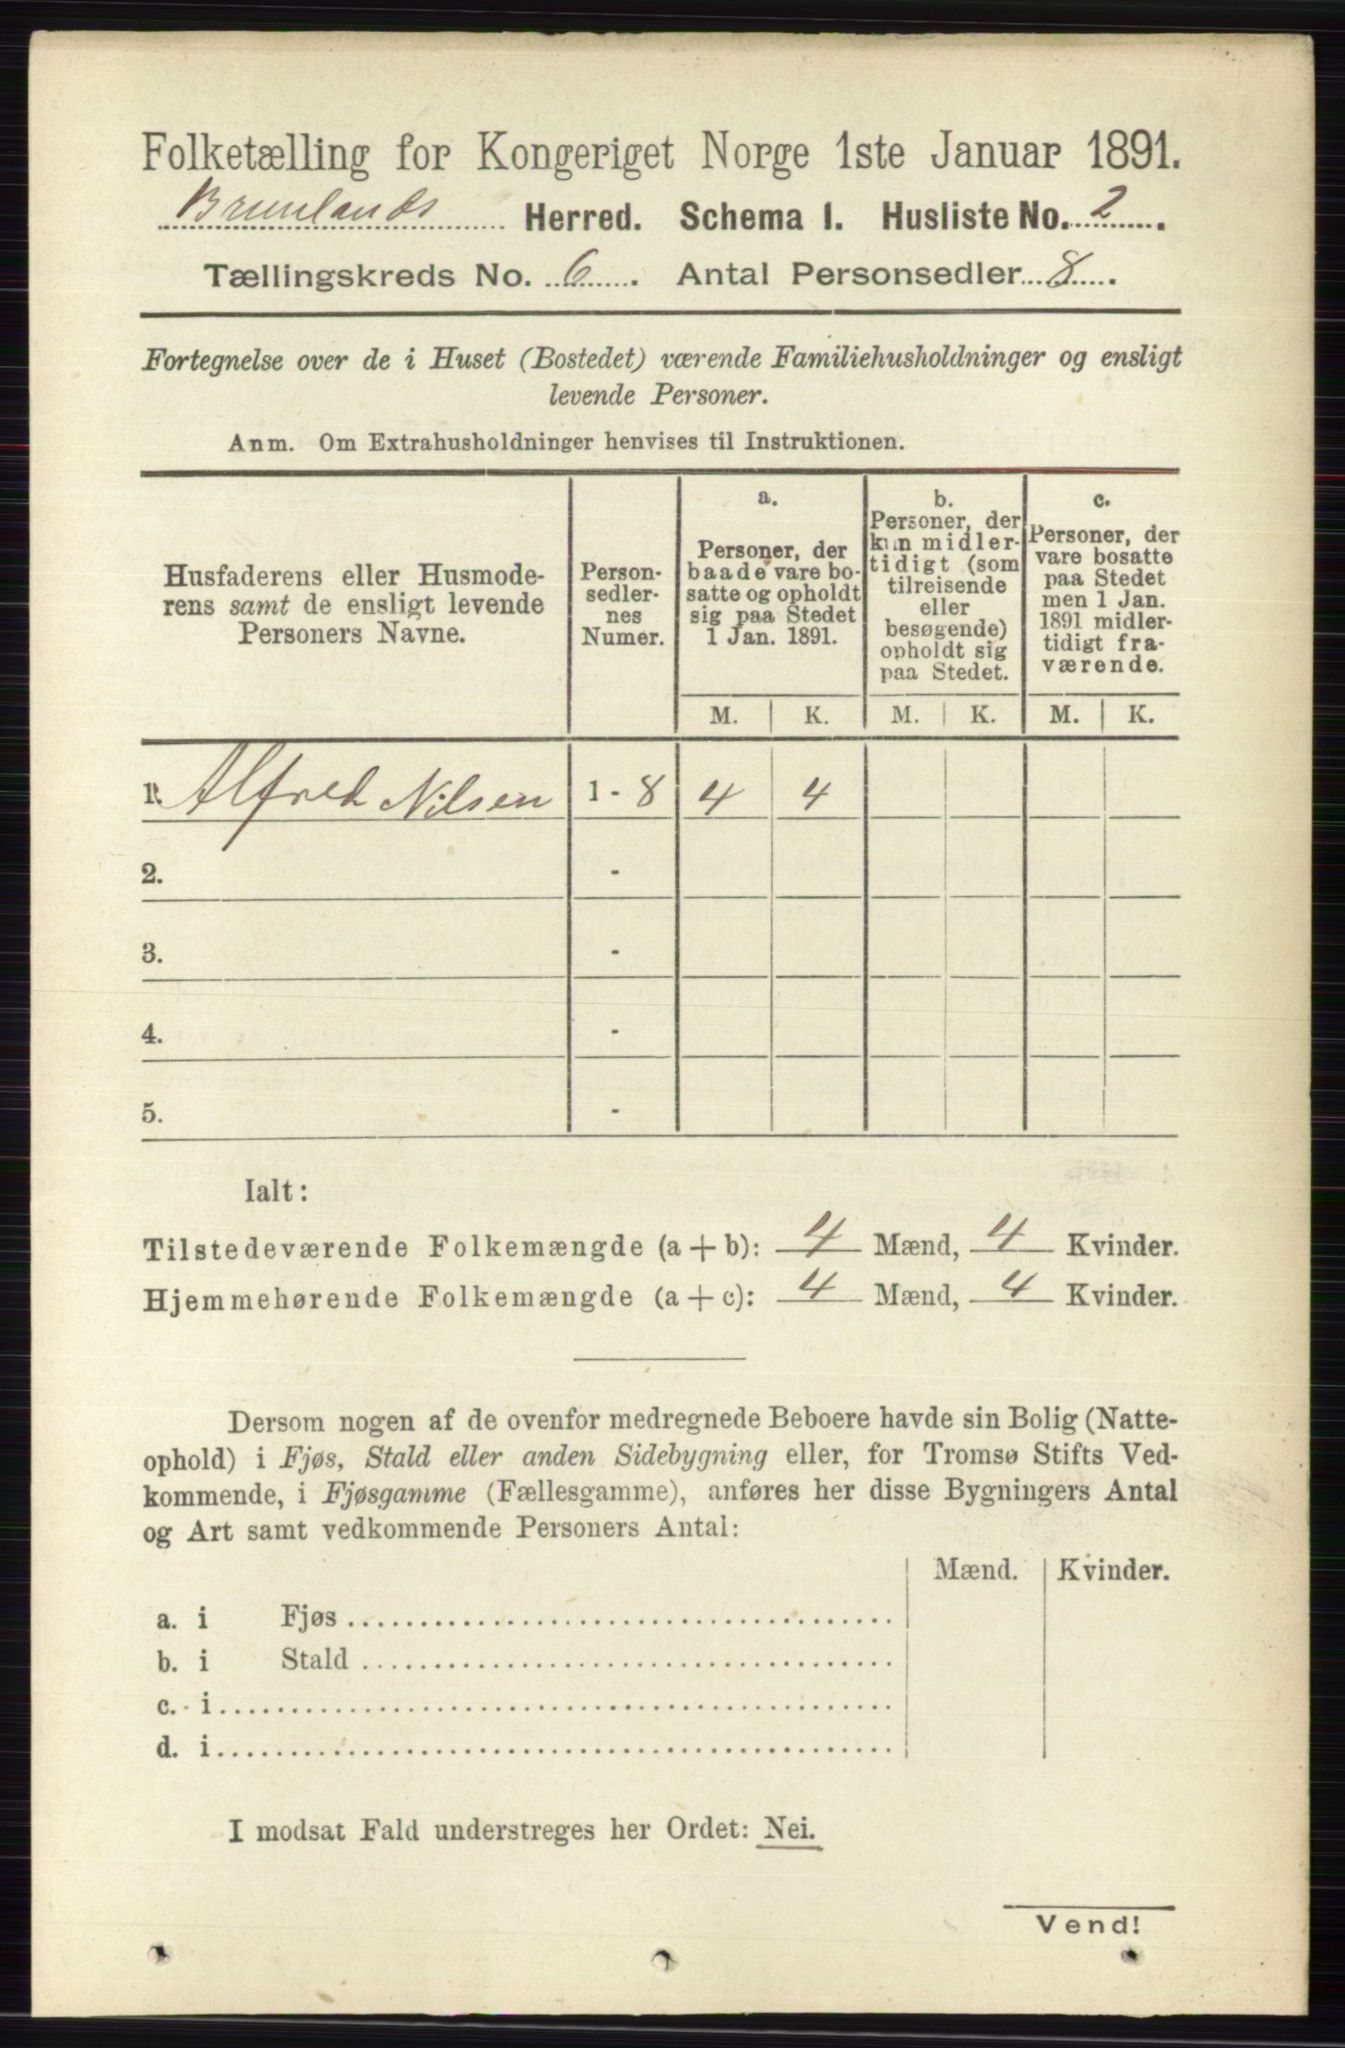 Folketælling for Kongeriget Norge 1ste Januar 1891.
Brunlands Herred. Schema I. Husliste No. 2.
Tællingskreds No. 6. Antal Personsedler 8.
Fortegnelse over de i Huset (Bostedet) værende Familiehusholdninger og ensligt
levende Personer.
Anm. Om Extrahusholdninger henvises til Instruktionen.
Husfaderens eller Husmode-
rens samt de ensligt levende
Personers Navne.
Person-
sedler-
nes
Numer.
a.
Personer, der
baade vare bo-
satte og opholdt
sig paa Stedet
1 Jan. 1891.
b.
Personer, der
kun midler-
tidigt (som
tilreisende
eller
besøgende)
opholdt sig
paa Stedet.
c.
Personer, der
vare bosatte
paa Stedet
men 1 Jan.
1891 midler-
tidigt fra-
værende.
M. K. M. K. M. K.
1. Alfred Nilsen 1 - 8 4 4
2. -
3. -
4. -
5. -
Ialt:
Tilstedeværende Folkemængde (a + b): 4 Mænd, 4 Kvinder.
Hjemmehørende Folkemængde (a + c): 4 Mænd, 4 Kvinder.
Dersom nogen af de ovenfor medregnede Beboere havde sin Bolig (Natte-
ophold) i Fjøs, Stald eller anden Sidebygning eller, for Tromsø Stifts Ved-
kommende, i Fjøsgamme (Fællesgamme), anføres her disse Bygningers Antal
og Art samt vedkommende Personers Antal:
Mænd. Kvinder.
a. i Fjøs
b. i Stald
c. i
d. i
I modsat Fald understreges her Ordet: Nei.
Vend!